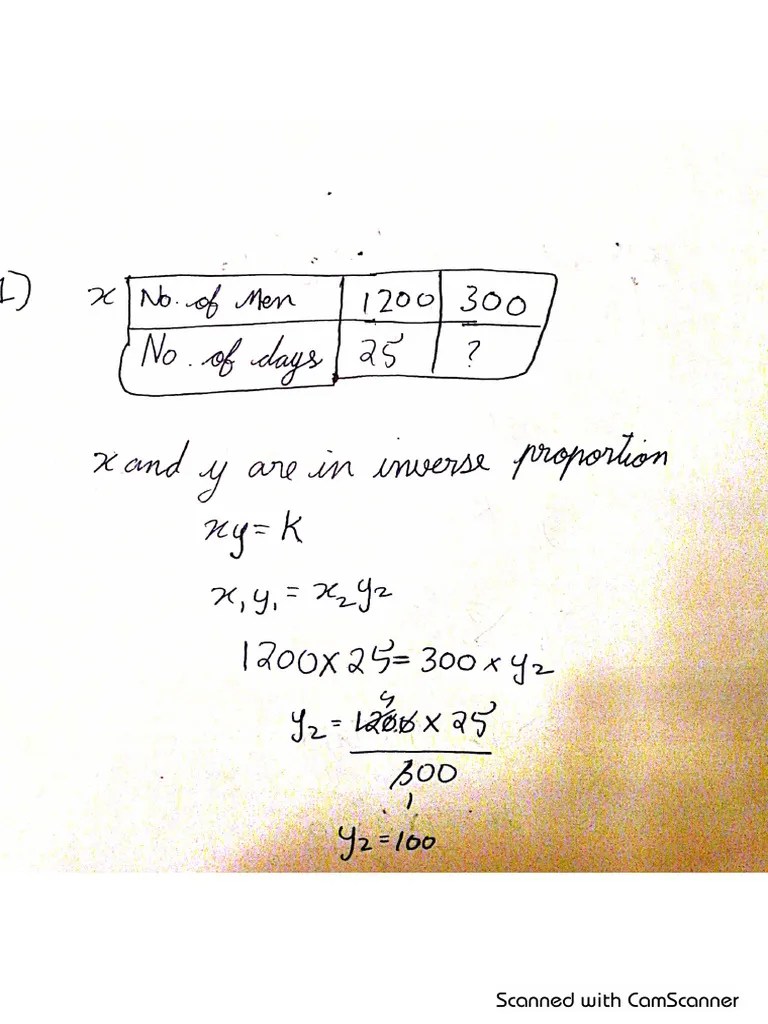 1)
x No. of Men 1200 300
No. of days 25 ?
x and y are in inverse proportion
xy = K
x₁y₁ = x₂y₂
1200 x 25 = 300 x y₂
4
y₂ = 1200 x 25
300
1
y₂ = 100
Scanned with CamScanner